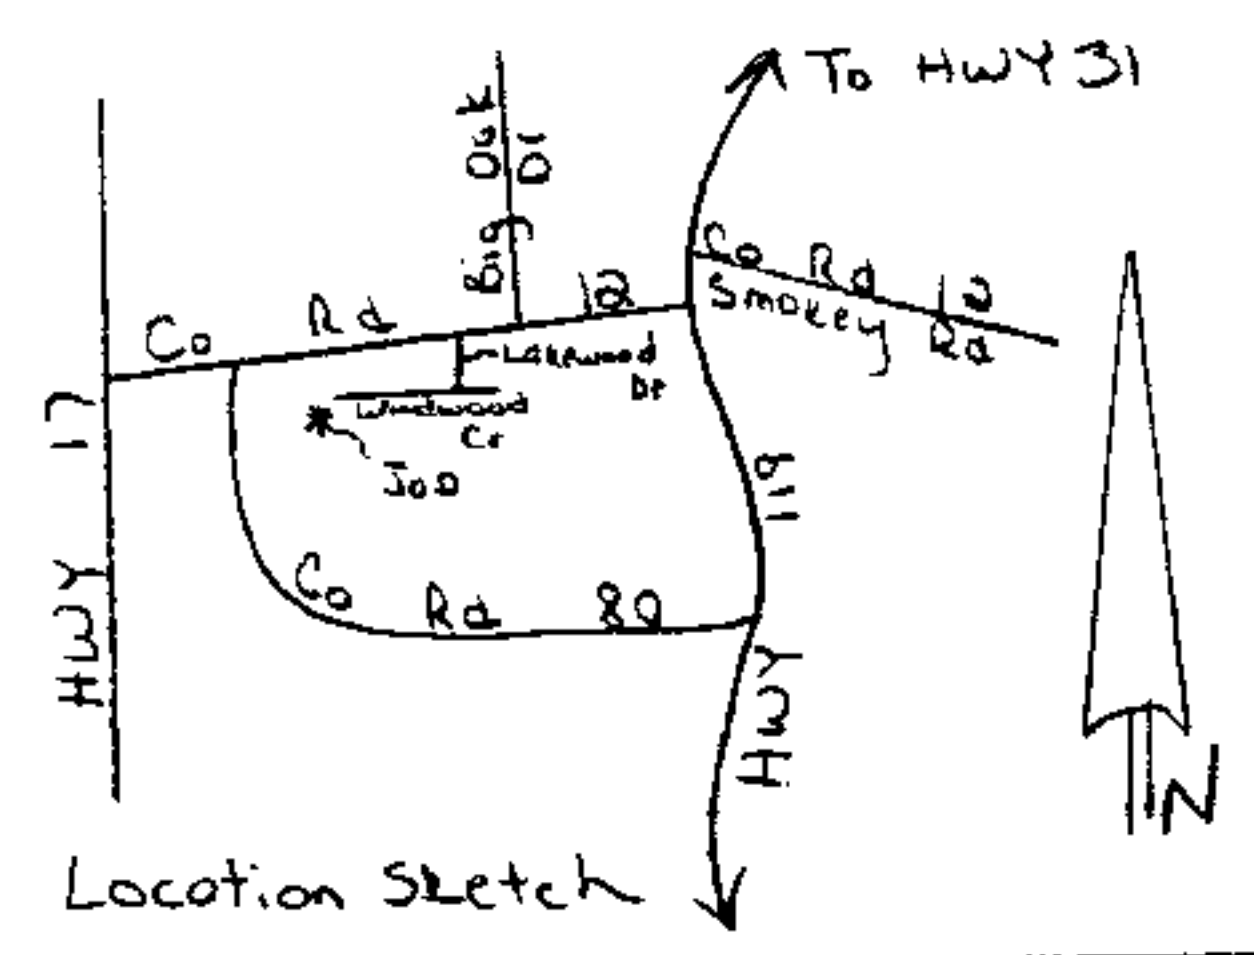 To HWY 31
Big Oak
Dr
Co Rd 12
Co Rd 12
Smokey Rd
Lakewood
Dr
Windwood
Cr
JOB
HWY 17
HWY 119
Co Rd 80
Location Sketch
N